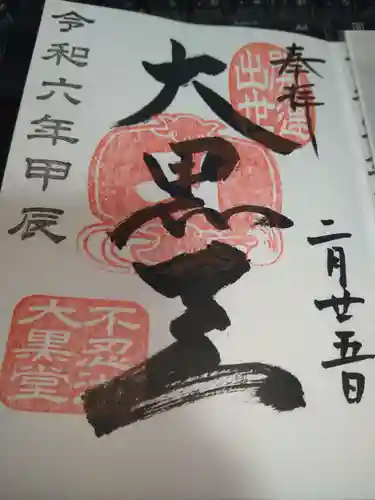 奉拝
二月廿五日
出世
大黒天
令和六年甲辰
不忍
大黒堂